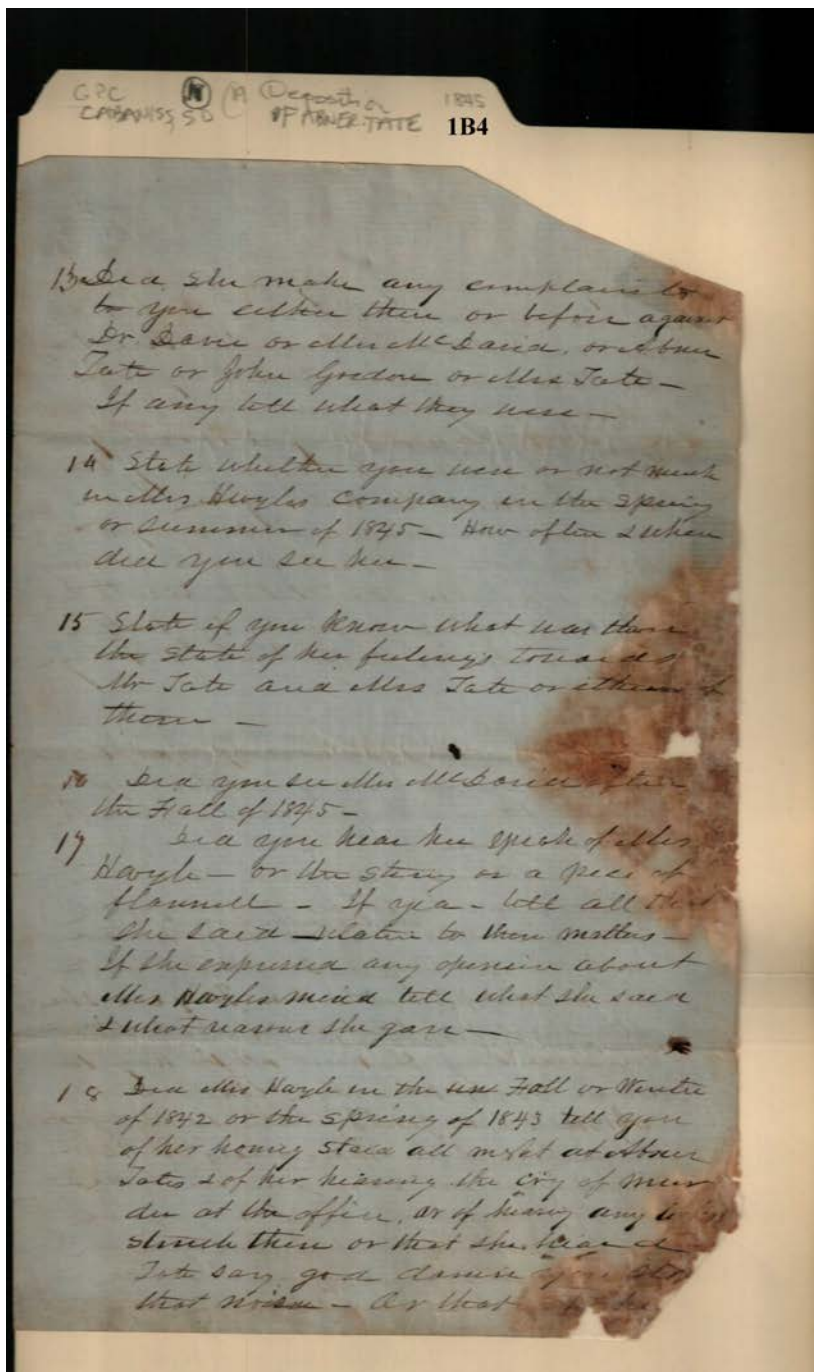 GPC N (A Deposition 1845
CABANISS, SD OF ABNER TATE 1B4
13 Did she make any complaints
to you either then or before against
Dr Davie or Mrs McDavid, or Abner
Tate or John Gordon or Mrs Tate —
If any tell what they were —
14 State whether you were or not much
in Mrs Hoyles company in the Spring
or Summer of 1845 — How often & when
did you see her —
15 State if you know what was then
the State of her feelings towards
Mr Tate and Mrs Tate or either of
them —
16 Did you see Mrs McDavid after
the Fall of 1845 —
17 Did you hear her speak of Mrs
Hoyle — or the story or a piece of
flannell — If yea — tell all that
she said relative to these matters —
If she expressed any opinion about
Mrs Hoyles mind tell what she said
& what reasons she gave —
18 Did Mrs Hoyle in the Fall or Winter
of 1842 or the Spring of 1843 tell you
of her having staid all night at Abner
Tates & of her hearing the cry of mur
der at the office, or of hearing any
struck there or that she heard
Tate say god damn you stop
that noise — Or that